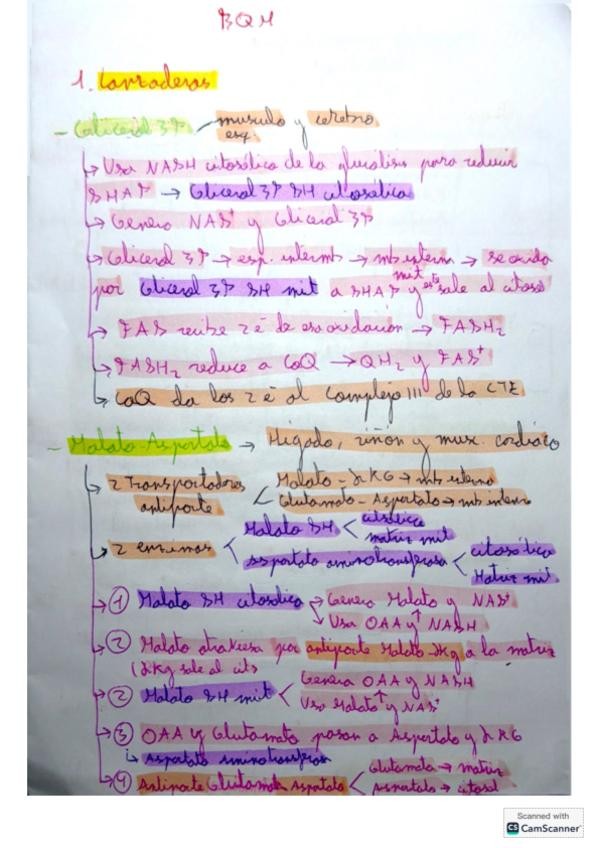 BQM
1. Lanzaderas
- Glicerol 3P músculo y cerebro
esq.
Usa NADH citosólico de la glucólisis para reducir
DHAP → Glicerol 3P DH citosólica
Genera NAD+ y Glicerol 3P
Glicerol 3P → esp. intermb → mb interna → se oxida
por Glicerol 3P DH mit a DHAP y este sale al citosol
mit
FAD recibe 2 é de esa oxidación → FADH2
FADH2 reduce a CoQ → QH2 y FAD+
CoQ da los 2 é al Complejo III de la CTE
- Malato-Aspartato → Hígado, riñón y musc. cardíaco
2 Transportadores Malato - αKG → mb interna
antiporte Glutamato - Aspartato → mb interna
2 enzimas Malato DH citosólica
matriz mit
Aspartato aminotransferasa citosólica
Matriz mit.
① Malato DH citosólica Genera Malato y NAD+
Usa OAA y NADH
② Malato atraviesa por antiporte Malato αkg a la matriz
(αkg sale al cits
② Malato DH mit Genera OAA y NADH
Usa Malato y NAD+
③ OAA y Glutamato pasan a Aspartato y αKG
Aspartato aminotransferasa
④ Antiporte Glutamato Aspartato Glutamato → matriz
Aspartato → citosol
Scanned with
CS CamScanner